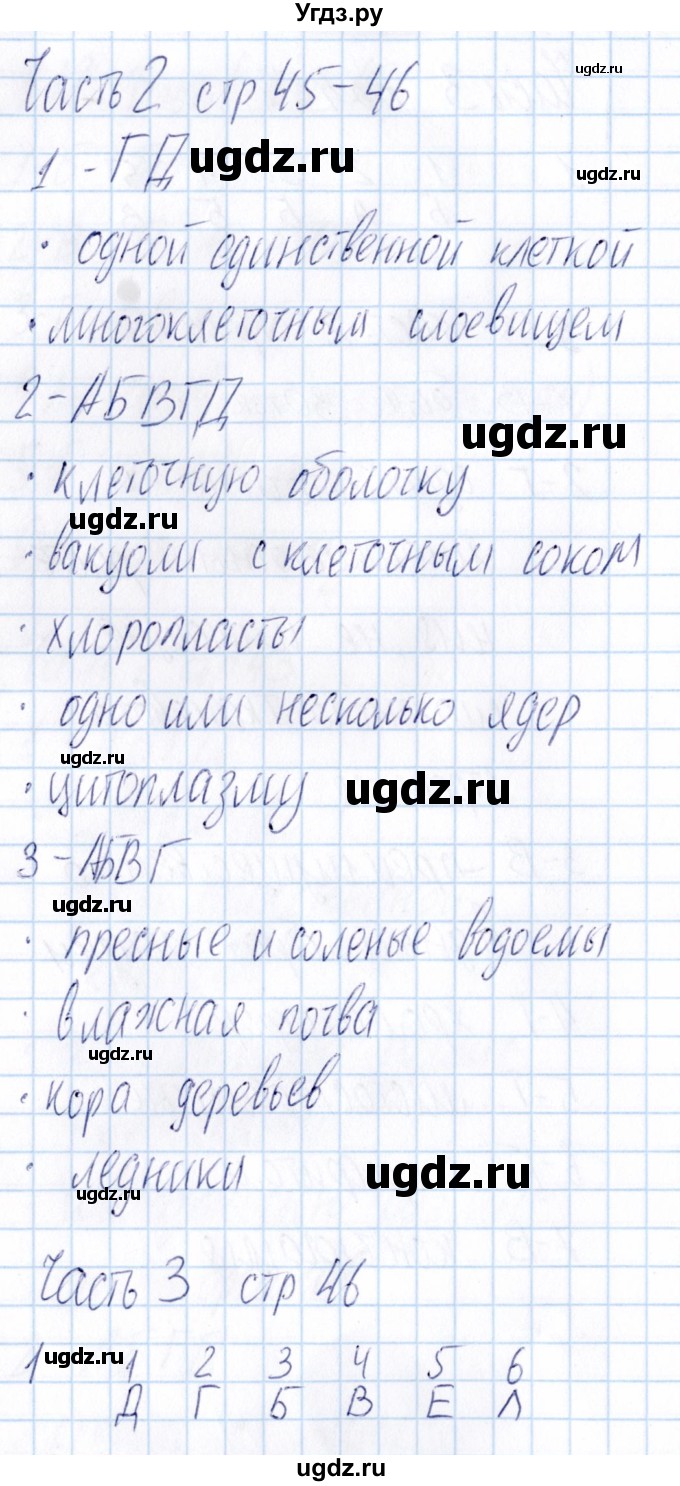 Угдз.ру
ugdz.ru
Часть 2 стр 45-46
ugdz.ru
1 - ГД
ugdz.ru
· одной единственной клеткой
· многоклеточным слоевищем
2 - АБВГД
ugdz.ru
· клеточную оболочку
ugdz.ru
· вакуоли с клеточным соком
· хлоропласты
· одно или несколько ядер
ugdz.ru
· цитоплазму
ugdz.ru
3 - АБВГ
ugdz.ru
· пресные и соленые водоемы
· влажная почва
ugdz.ru
· кора деревьев
· ледники
ugdz.ru
ugdz.ru
Часть 3 стр 46
1 ugdz.ru 1 2 3 4 5 6
Д Г Б В Е Л
ugdz.ru